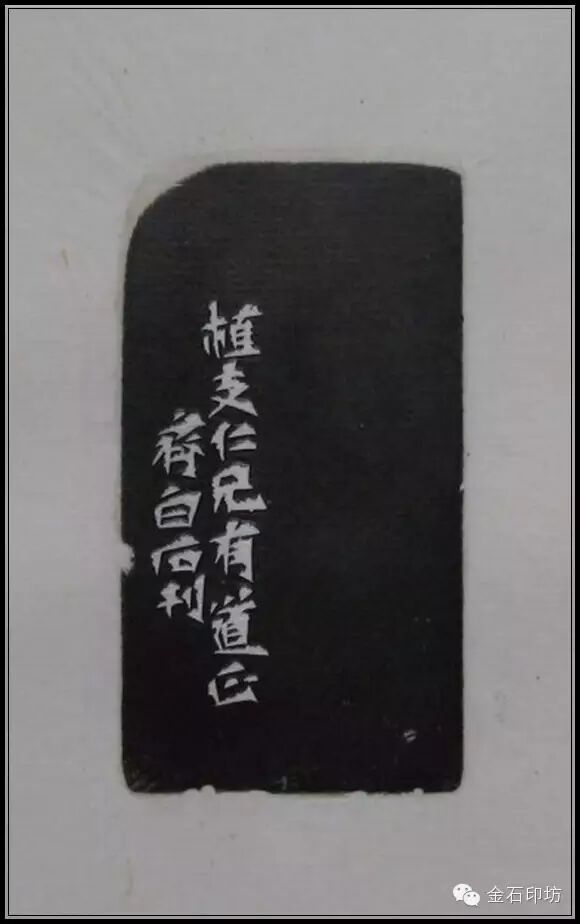 植支仁兄有道正
齊白石刊
金石印坊